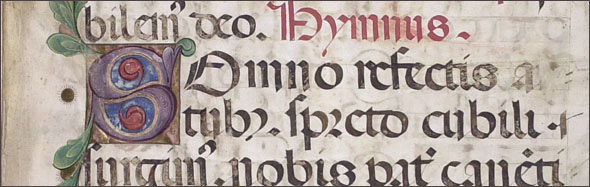 bilem deo. Hymnus.
SOmno refectis a
tybꝫ. spreto cubili.
surgimꝰ. nobis pat̉ canẽti